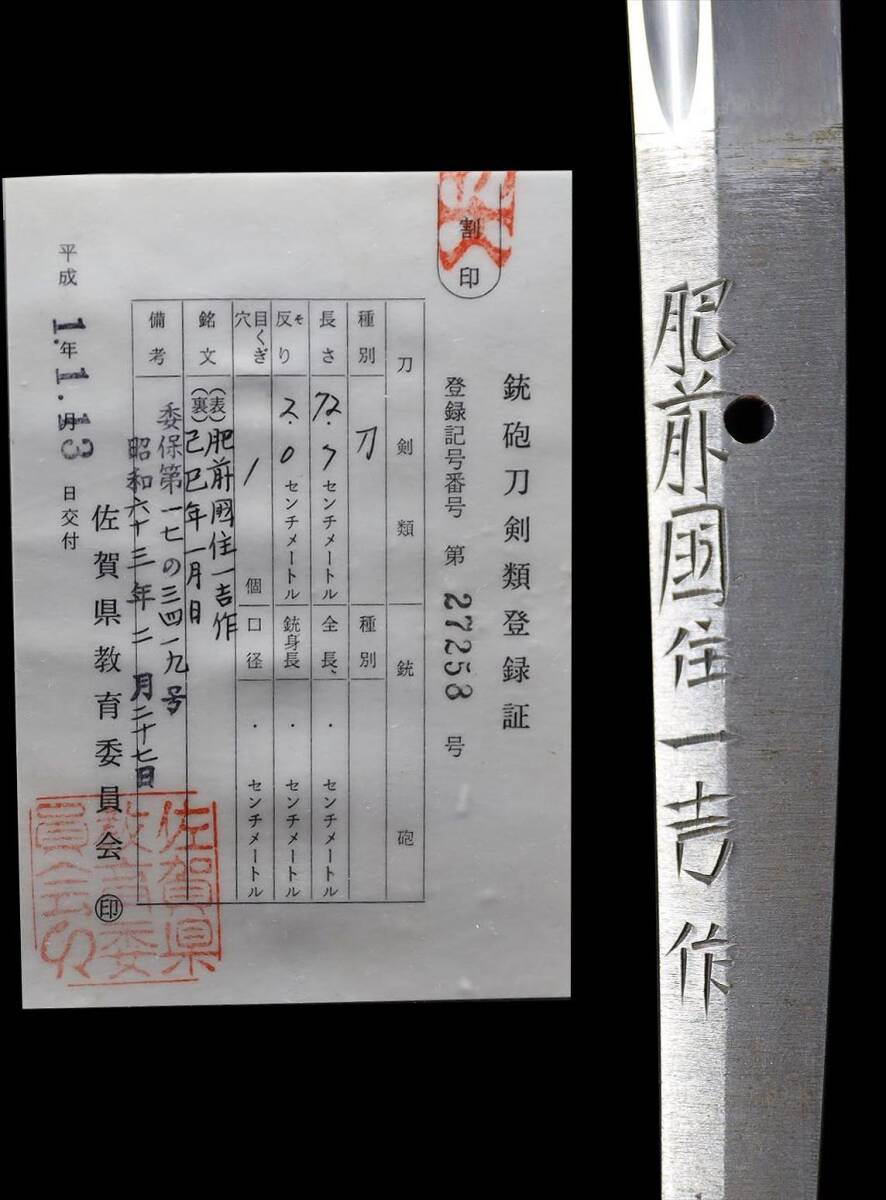 割印
銃砲刀剣類登録証
登録記号番号 第 27253 号
刀剣類 銃砲
種別 刀 種別
長さ 72.7 センチメートル 全長、 . センチメートル
反り そ 2.0 センチメートル 銃身長 . センチメートル
目くぎ穴 1 個 口径 . センチメートル
銘文 (表) 肥前國住一吉作
(裏) 己巳年一月日
備考 委保第一七の三四一九号
昭和六十三年二月二十七日
平成 1.年 1.月 13 日交付
佐賀県教育委員会 ㊞
佐賀県
教育委
員会
肥前國住一吉作